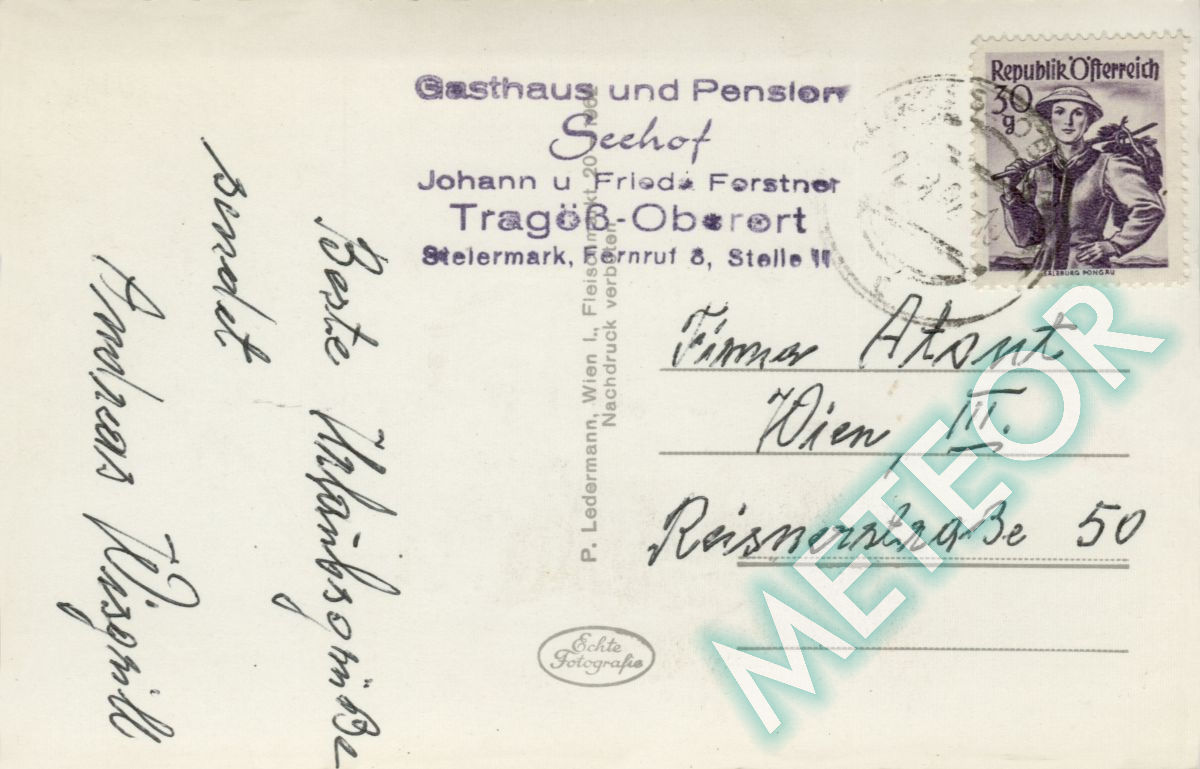 Gasthaus und Pension
Seehof
Johann u Frieda Forstner
Tragöß-Oberort
Steiermark, Fernruf 8, Stelle 11
Republik Österreich
30
g
SALZBURG PONGAU
Beste Urlaubsgrüße
sendet
Andreas
P. Ledermann, Wien I., Fleischmarkt 20
Nachdruck verboten
Firma Atout
Wien, III.
Reisnerstraße 50
Echte
Fotografie
METEOR